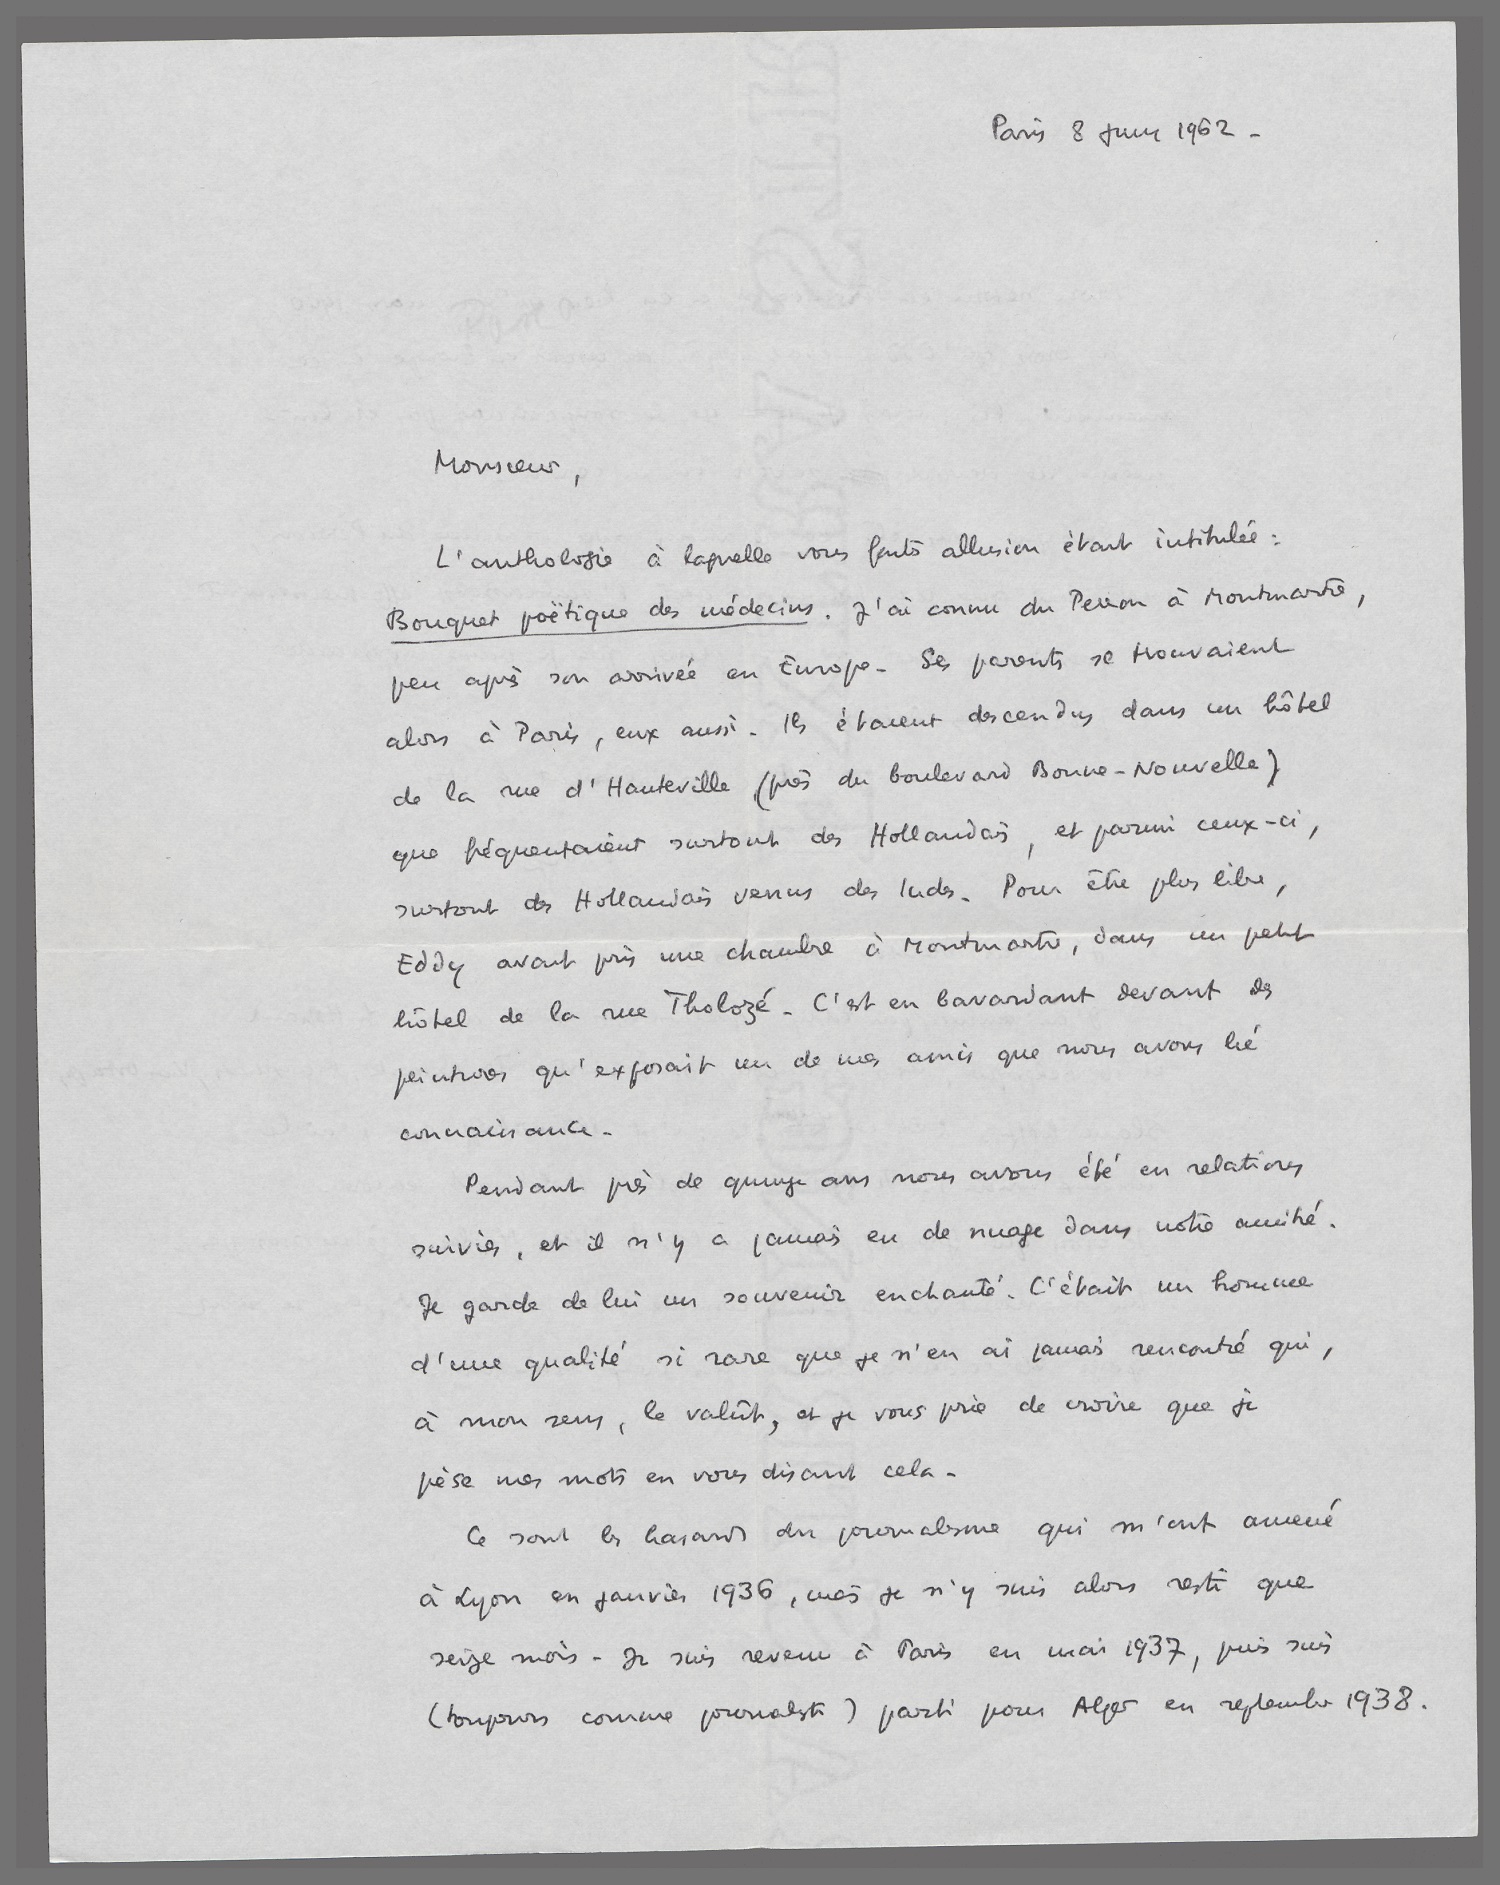 Paris 8 juin 1962 -
Monsieur,
L'anthologie à laquelle vous faites allusion étant intitulée :
Bouquet poëtique des médecins. J'ai connu du Perron à Montmartre,
peu après son arrivée en Europe - Ses parents se trouvaient
alors à Paris, eux aussi - Ils étaient descendus dans un hôtel
de la rue d'Hauteville (près du boulevard Bonne-Nouvelle)
que fréquentaient surtout des Hollandais, et parmi ceux-ci,
surtout des Hollandais venus des Indes - Pour être plus libre,
Eddy avait pris une chambre à Montmartre, dans un petit
hôtel de la rue Tholozé - C'est en bavardant devant des
peintures qu'exposait un de mes amis que nous avons lié
connaissance -
Pendant près de quinze ans nous avons été en relations
suivies, et il n'y a jamais eu de nuage dans notre amitié.
Je garde de lui un souvenir enchanté. C'était un homme
d'une qualité si rare que je n'en ai jamais rencontré qui,
à mon sens, le valût, et je vous prie de croire que je
pèse mes mots en vous disant cela -
Ce sont les hasards du journalisme qui m'ont amené
à Lyon en janvier 1936, mais je n'y suis alors resté que
seize mois - Je suis revenu à Paris en mai 1937, puis suis
(toujours comme journaliste) parti pour Alger en septembre 1938.